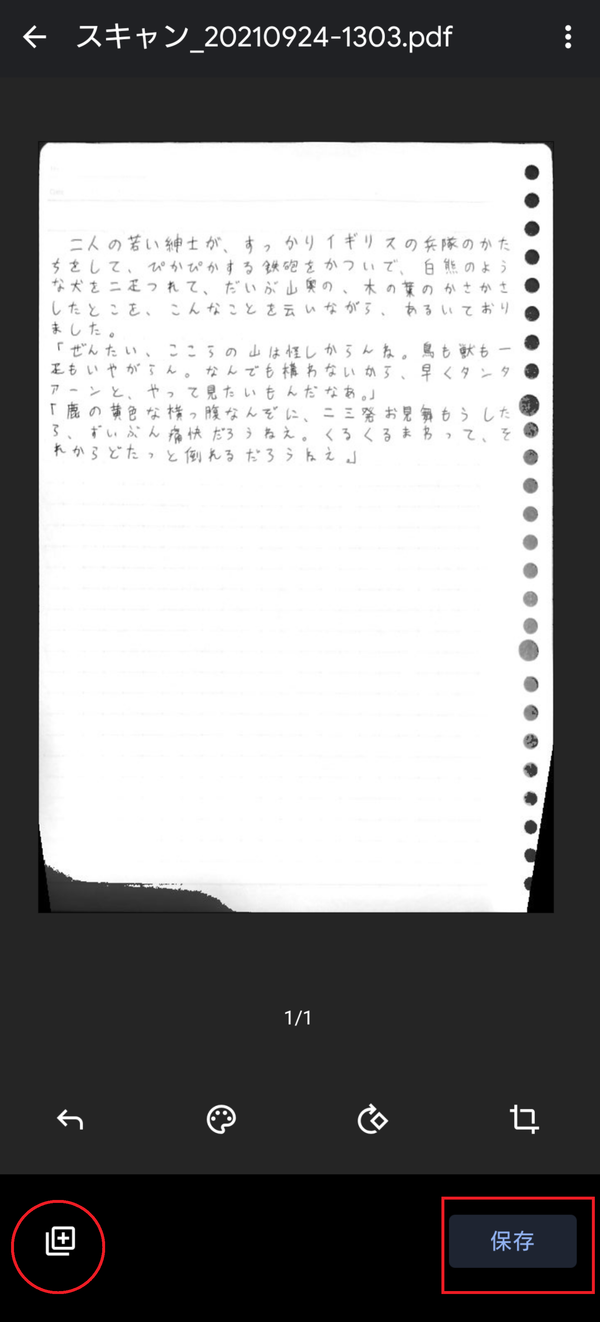 スキャン_20210924-1303.pdf
二人の若い紳士が、すっかりイギリスの兵隊のかた
ちをして、ぴかぴかする鉄砲をかついで、白熊のよう
な犬を二疋つれて、だいぶ山奥の、木の葉のかさかさ
したとこを、こんなことを云いながら、あるいており
ました。
「ぜんたい、ここらの山は怪しからんね。鳥も獣も一
疋もいやがらん。なんでも構わないから、早くタンタ
アーンと、やって見たいもんだなあ。」
「鹿の黄色な横っ腹なんぞに、二三発お見舞もうした
ら、ずいぶん痛快だろうねえ。くるくるまわって、そ
れからどたっと倒れるだろうねえ。」
1/1
保存